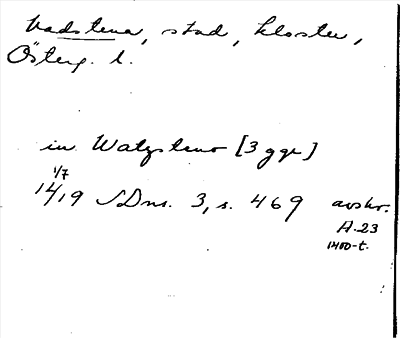 Vadstena, stad, kloster,
Österg. l.
in Watzstena [3 ggr]
1/7
1419 SDns. 3, s. 469 avskr.
A.23
1400-t.